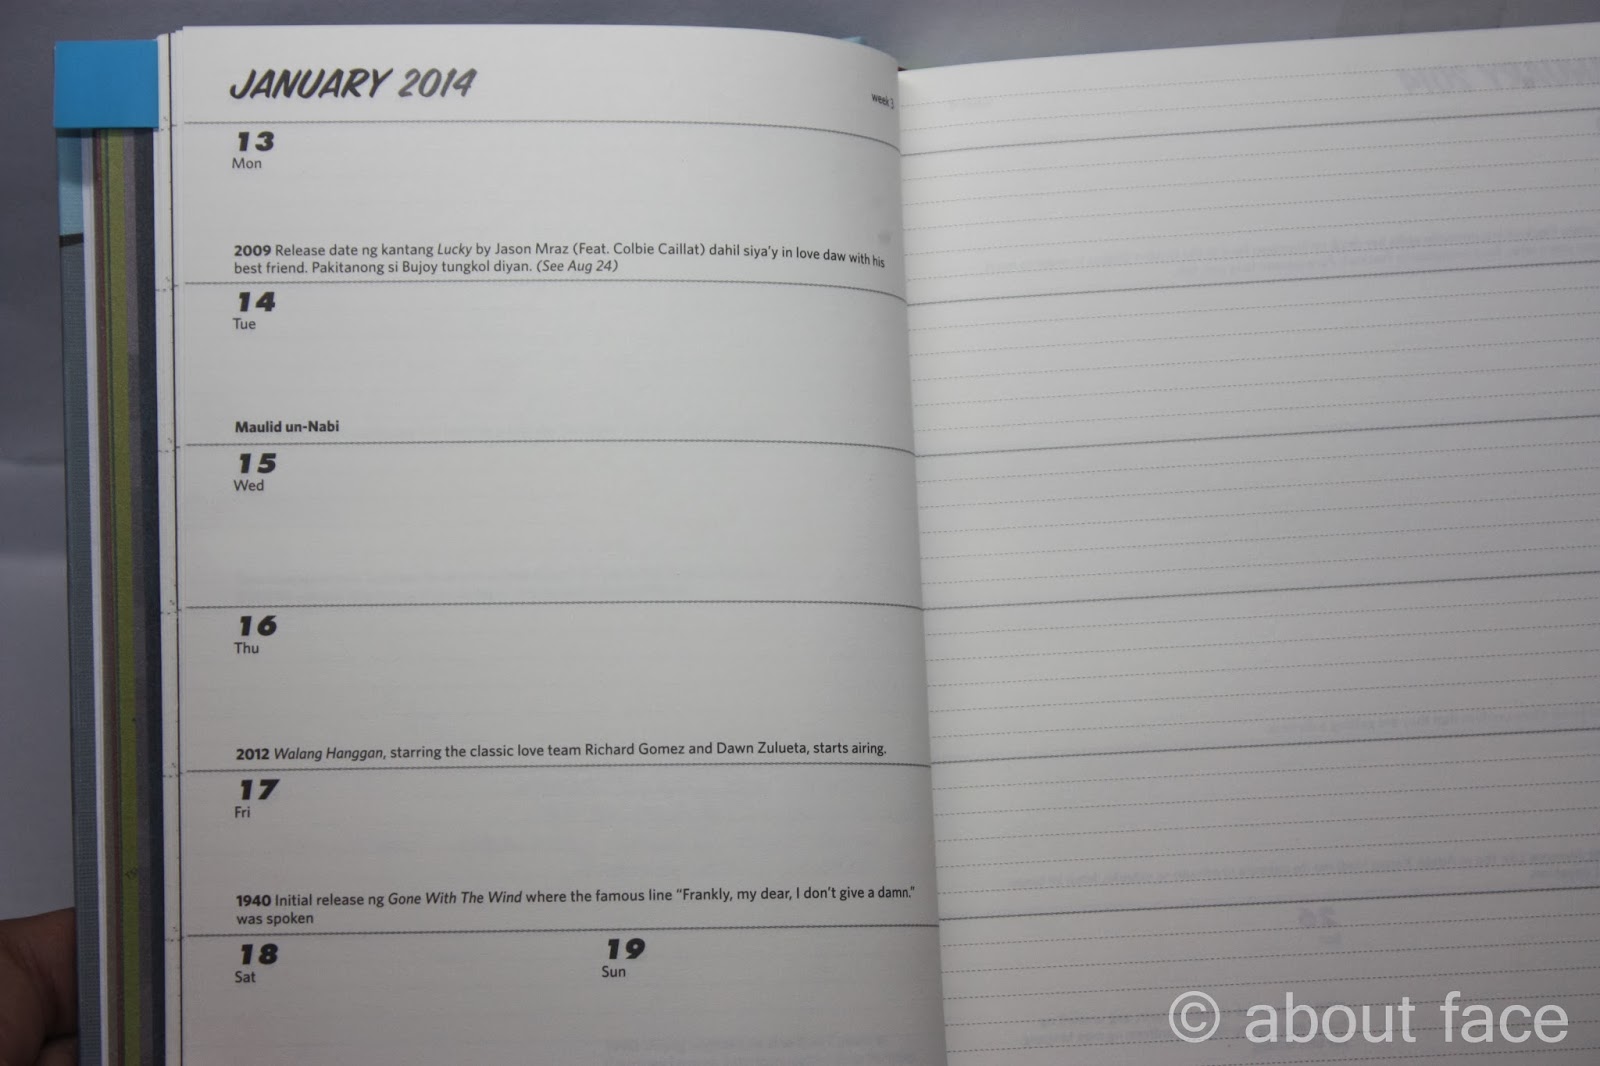 JANUARY 2014
week 3
13
Mon
2009 Release date ng kantang Lucky by Jason Mraz (Feat. Colbie Caillat) dahil siya'y in love daw with his
best friend. Pakitanong si Bujoy tungkol diyan. (See Aug 24)
14
Tue
Maulid un-Nabi
15
Wed
16
Thu
2012 Walang Hanggan, starring the classic love team Richard Gomez and Dawn Zulueta, starts airing.
17
Fri
1940 Initial release ng Gone With The Wind where the famous line “Frankly, my dear, I don't give a damn.”
was spoken
18
Sat
19
Sun
© about face